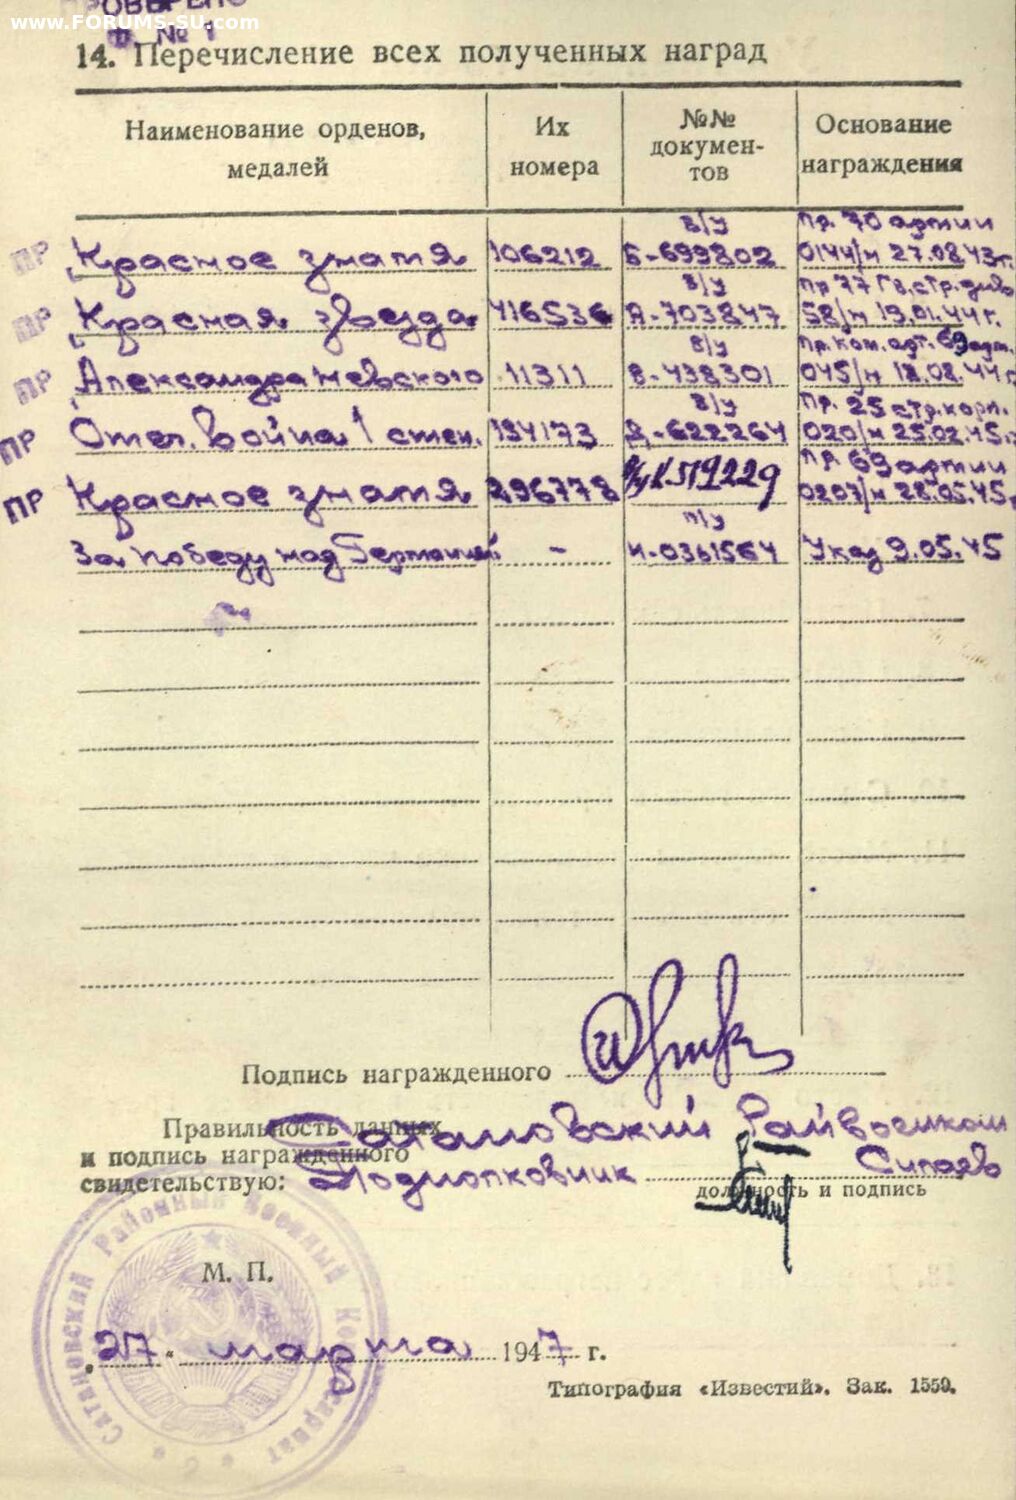 ПРОВЕРЕНО
www.FORUMS-SU.com
Ф № 1
14. Перечисление всех полученных наград
Наименование орденов, медалей
Их номера
№№ докумен-тов
Основание награждения
ПР Красное знамя 106212 в/у Б-699802 Пр. 70 армии 0144/н 27.08.43г.
ПР Красная звезда 416536 в/у А-703847 Пр 77 Гв. стр. див 58/н 19.01.44г.
ПР Александра Невского 11311 в/у В-438301 Пр. ком. арт. 69 арм. 045/н 18.08.44г
ПР Отеч. война 1 степ. 134173 в/у Д-622264 Пр. 25 стр. корп. 020/н 25.02.45г.
ПР Красное знамя 296778 в/у К 519229 Пр. 69 армии 0207/н 28.05.45г
За победу над Германией - п/у И-0361564 Указ 9.05.45
Подпись награжденного
Правильность данных
и подпись награжденного
свидетельствую:
Сатановский Райвоенком
Подполковник
должность и подпись
М. П.
Сатановский Районный Военный Комиссариат
„27“ марта 1947 г.
Типография «Известий». Зак. 1559.